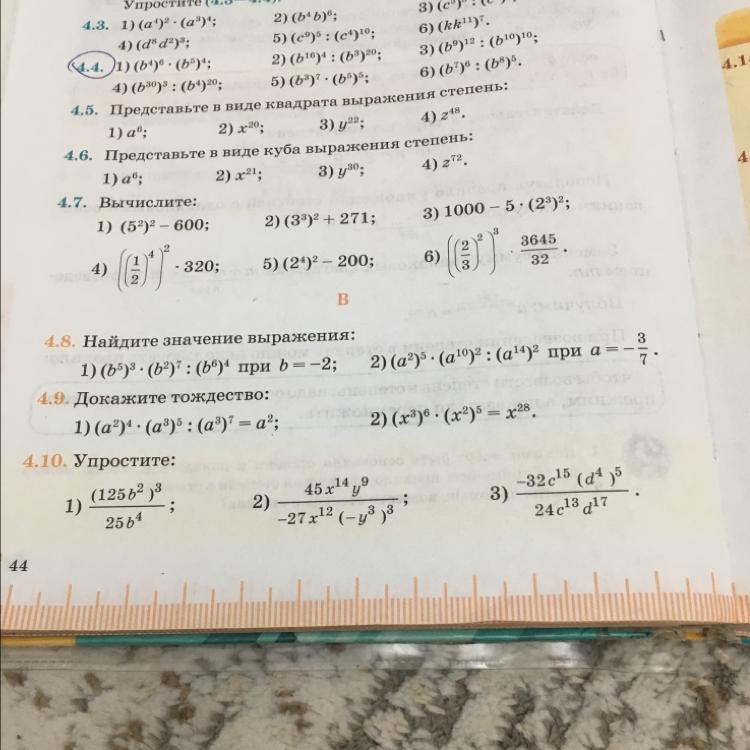 Упростите (4.3—4.4):
4.3. 1) (a⁴)² · (a³)⁴; 2) (b⁴b)⁶;
4) (d⁸d²)³; 5) (c⁹)⁵ : (c⁴)¹⁰; 6) (kk¹¹)⁷.
4.4. 1) (b⁴)⁶ · (b⁵)⁴; 2) (b¹⁶)⁴ : (b³)²⁰; 3) (b⁹)¹² : (b¹⁰)¹⁰;
4) (b³⁰)³ : (b⁴)²⁰; 5) (b³)⁷ · (b⁵)⁵; 6) (b⁷)⁶ : (b⁸)⁵.
4.5. Представьте в виде квадрата выражения степень:
1) a⁶; 2) x²⁰; 3) y²²; 4) z⁴⁸.
4.6. Представьте в виде куба выражения степень:
1) a⁶; 2) x²¹; 3) y³⁰; 4) z⁷².
4.7. Вычислите:
1) (5²)² – 600; 2) (3³)² + 271; 3) 1000 – 5 · (2³)²;
4) ((1/2)⁴)² · 320; 5) (2⁴)² – 200; 6) ((2/3)²)³ · 3645/32.
В
4.8. Найдите значение выражения:
1) (b⁵)³ · (b²)⁷ : (b⁶)⁴ при b = –2; 2) (a²)⁵ · (a¹⁰)² : (a¹⁴)² при a = –3/7.
4.9. Докажите тождество:
1) (a²)⁴ · (a³)⁵ : (a³)⁷ = a²; 2) (x³)⁶ · (x²)⁵ = x²⁸.
4.10. Упростите:
1) (125b²)³/25b⁴; 2) 45x¹⁴y⁹/–27x¹²(–y³)³; 3) –32c¹⁵(d⁴)⁵/24c¹³d¹⁷.
44
4.1
4